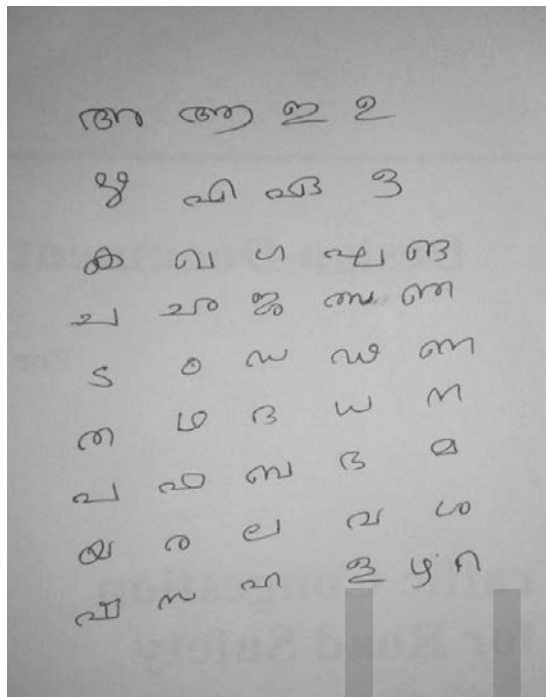 അ ആ ഇ ഉ
ഋ എ ഏ ഒ
ക ഖ ഗ ഘ ങ
ച ഛ ജ ഝ ഞ
ട ഠ ഡ ഢ ണ
ത ഥ ദ ധ ന
പ ഫ ബ ഭ മ
യ ര ല വ ശ
ഷ സ ഹ ള ഴ റ